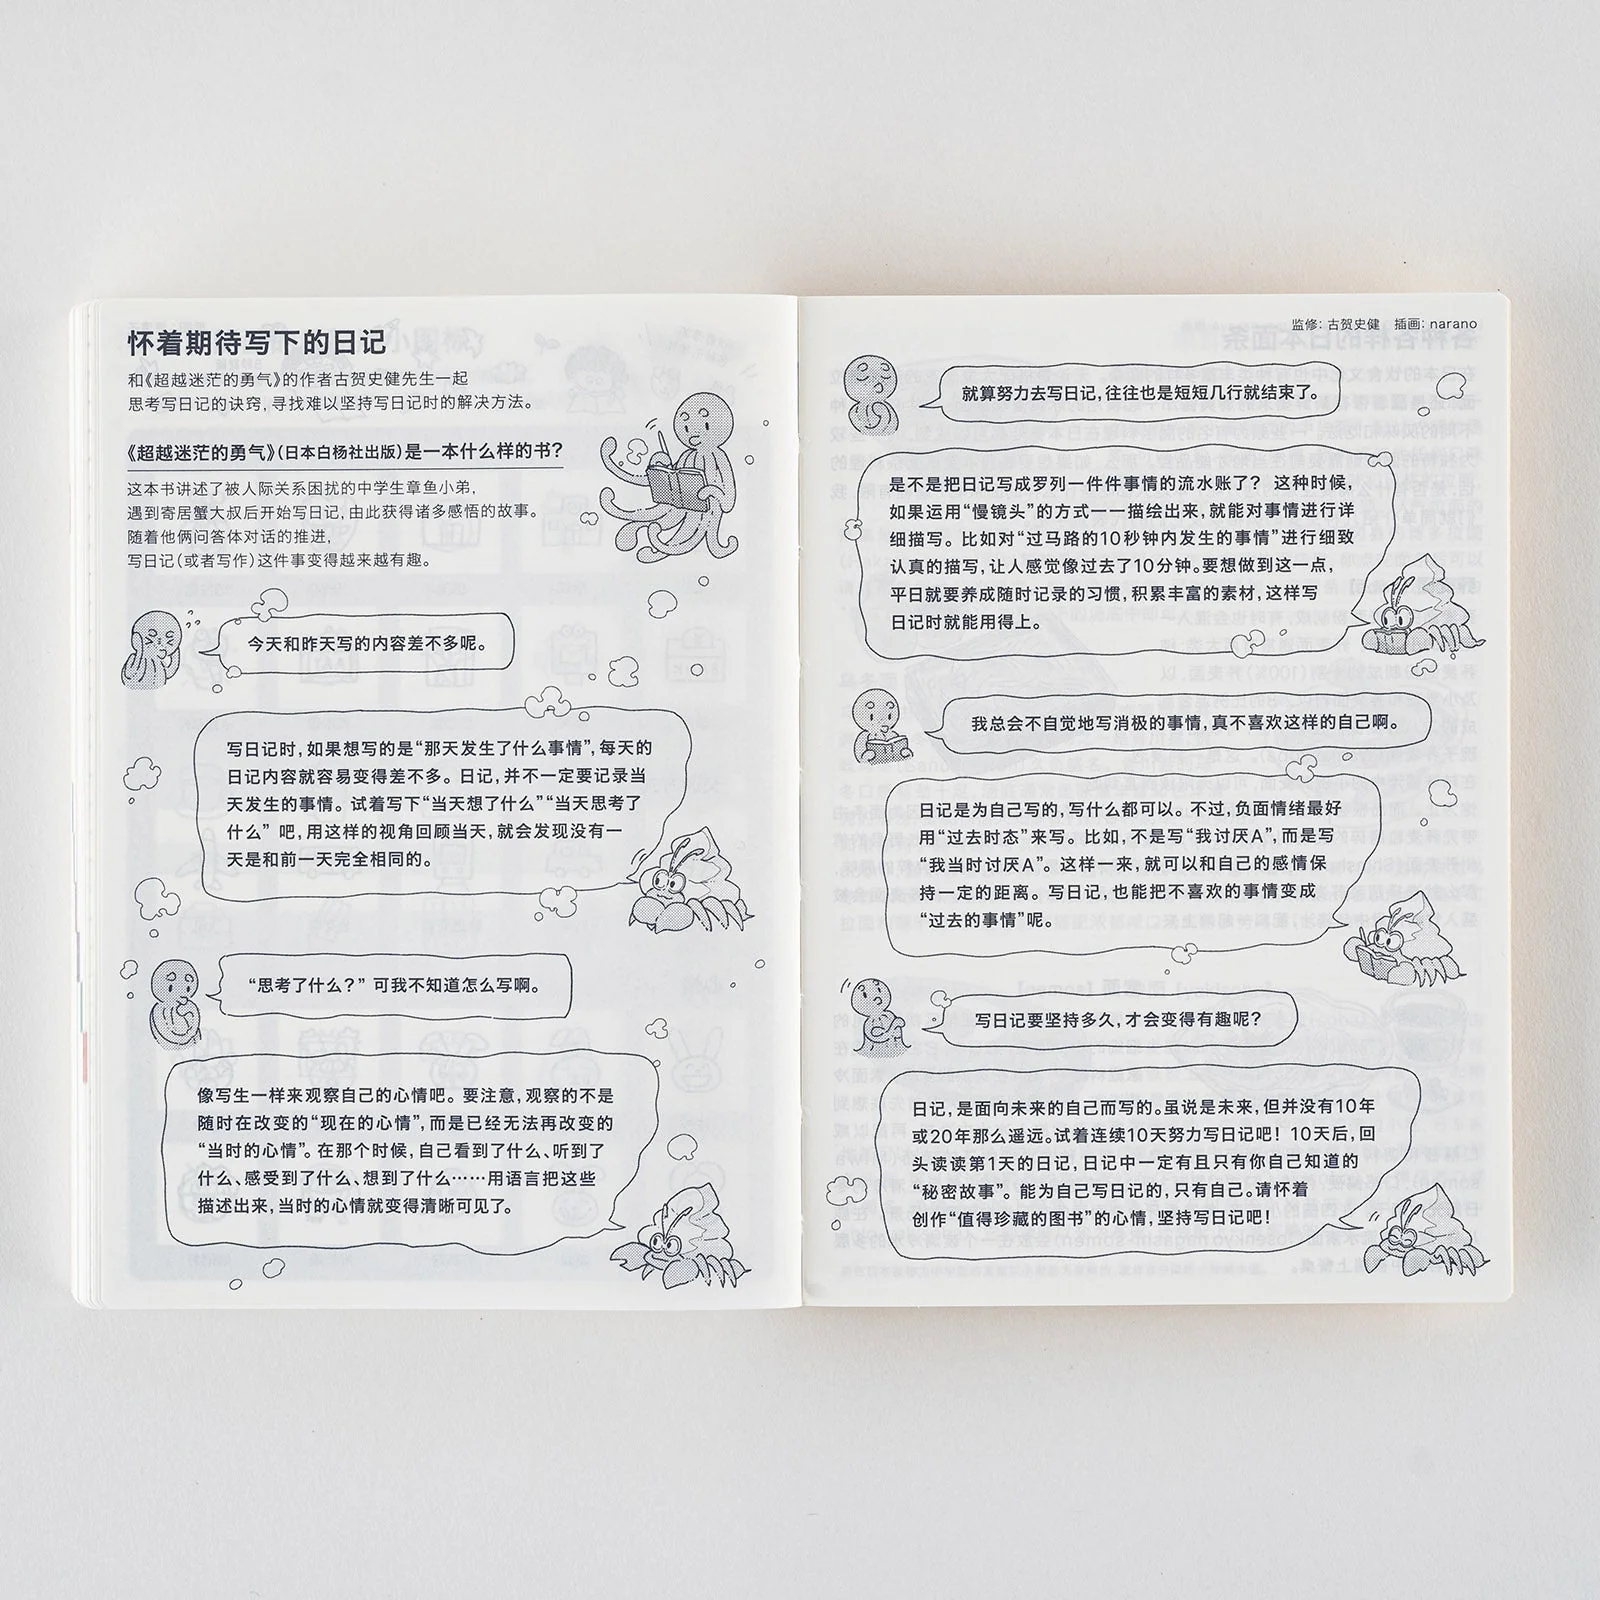 怀着期待写下的日记
和《超越迷茫的勇气》的作者古贺史健先生一起
思考写日记的诀窍，寻找难以坚持写日记时的解决方法。
《超越迷茫的勇气》（日本白杨社出版）是一本什么样的书？
这本书讲述了被人际关系困扰的中学生章鱼小弟，
遇到寄居蟹大叔后开始写日记，由此获得诸多感悟的故事。
随着他俩问答体对话的推进，
写日记（或者写作）这件事变得越来越有趣。
今天和昨天写的内容差不多呢。
写日记时，如果想写的是“那天发生了什么事情”，每天的
日记内容就容易变得差不多。日记，并不一定要记录当
天发生的事情。试着写下“当天想了什么”“当天思考了
什么”吧，用这样的视角回顾当天，就会发现没有一
天是和前一天完全相同的。
“思考了什么？”可我不知道怎么写啊。
像写生一样来观察自己的心情吧。要注意，观察的不是
随时在改变的“现在的心情”，而是已经无法再改变的
“当时的心情”。在那个时候，自己看到了什么、听到了
什么、感受到了什么、想到了什么……用语言把这些
描述出来，当时的心情就变得清晰可见了。
监修：古贺史健 插画：narano
就算努力去写日记，往往也是短短几行就结束了。
是不是把日记写成罗列一件件事情的流水账了？ 这种时候，
如果运用“慢镜头”的方式一一描绘出来，就能对事情进行详
细描写。比如对“过马路的10秒钟内发生的事情”进行细致
认真的描写，让人感觉像过去了10分钟。要想做到这一点，
平日就要养成随时记录的习惯，积累丰富的素材，这样写
日记时就能用得上。
我总会不自觉地写消极的事情，真不喜欢这样的自己啊。
日记是为自己写的，写什么都可以。不过，负面情绪最好
用“过去时态”来写。比如，不是写“我讨厌A”，而是写
“我当时讨厌A”。这样一来，就可以和自己的感情保
持一定的距离。写日记，也能把不喜欢的事情变成
“过去的事情”呢。
写日记要坚持多久，才会变得有趣呢？
日记，是面向未来的自己而写的。虽说是未来，但并没有10年
或20年那么遥远。试着连续10天努力写日记吧！10天后，回
头读读第1天的日记，日记中一定有且只有你自己知道的
“秘密故事”。能为自己写日记的，只有自己。请怀着
创作“值得珍藏的图书”的心情，坚持写日记吧！